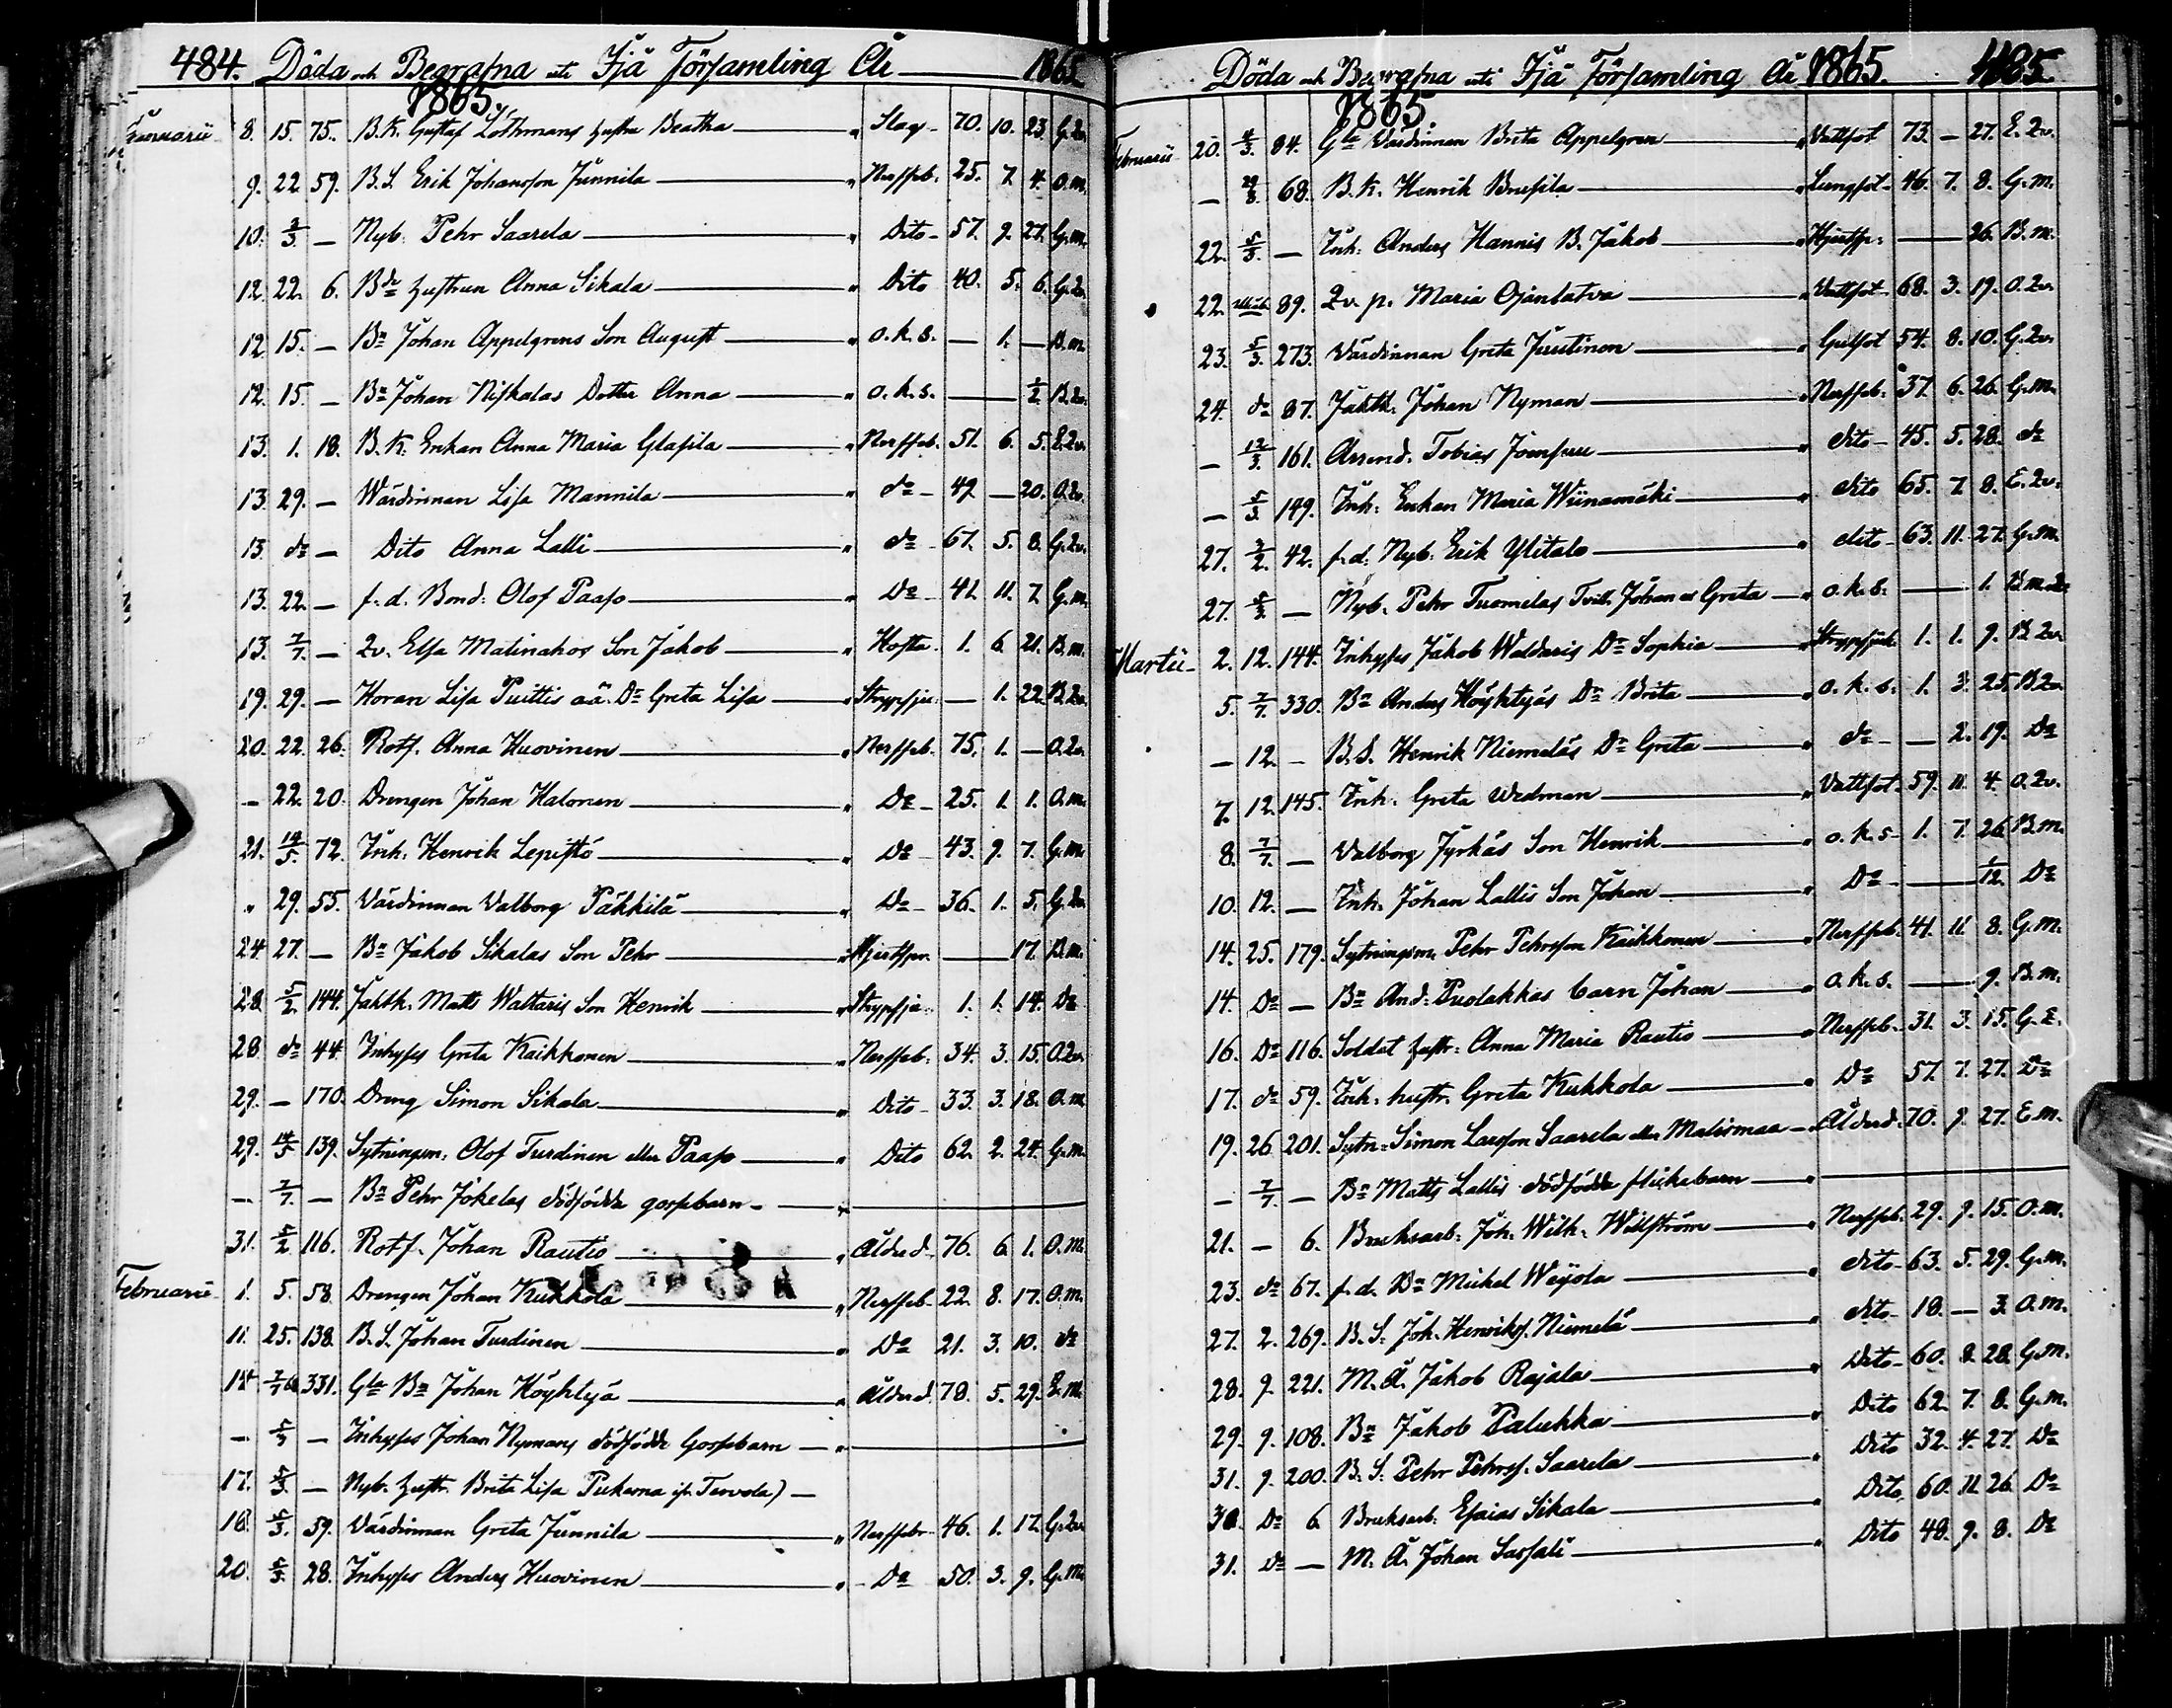 484. Döda och Begrafna uti Ijå Församling År 1865
1865.
Januarii 8. 15. 75. B. K. Gustaf Löthmans hustru Beatha " Slag 70. 10. 23. G. Qv.
9. 22. 59. B. S. Erik Johansson Junnila " Nerffeb. 25. 7. 4. O. m.
10. 2/3. — Nyb. Pehr Saarela " Dito 57. 9. 27. G. m.
12. 22. 6. Bde hustrun Anna Sikala " Dito 40. 5. 6. G. Qv.
12. 15. — Bn Johan Appelgrens Son August " o. k. s. — 1. — B. m.
12. 15. — Bn Johan Niskalas Dotter Anna " o. k. s. — 1/2 B. Qv.
13. 1. 18. B. K. Enkan Anna Maria Glasila " Nerffeb. 51. 6. 5. E. Qv.
13. 29. — Wärdinnan Lisa Mannila " do 49 — 20. O. Qv.
13. do — Dito Anna Lalli " do 67. 5. 8. G. Qv.
13. 22. — f. d. Bond. Olof Paaso " Do 41. 11. 7. G. m.
13. 7/7. — Qv. Elsa Matinahos Son Jakob " Hosta 1. 6. 21. B. m.
19. 29. — Horan Lisa Puittis oä. Dr Greta Lisa " Strypsju. — 1. 22. B. Qv.
20. 22. 26. Rotf. Anna Huovinen " Nerffeb. 75. 1. — O. Qv.
— 22. 20. Drengen Johan Halonen " Do 25. 1. 1. O. m.
21. 19/5. 72. Inh. Henrik Lepistö " Do 43. 9. 7. G. m.
" 29. 55. Värdinnan Valborg Päkkilä " Do 36. 1. 5. G. Qv.
24. 27. — Bn Jakob Sikalas Son Pehr " Hjertspr. — 17. B. m.
28. 5/2. 144. Jahtk. Matts Waltaris Son Henrik " Strypsju. 1. 1. 14. Do
28. do 44. Inhyses Greta Kaikkonen " Nerffeb. 34. 3. 15. O. Qv.
29. — 170. Dreng Simon Sikala " Dito 33. 3. 18. O. m.
29. 19/3. 139. Sytningsm. Olof Turdinen eller Paaso " Dito 62. 2. 24. G. m.
— 7/7. — Bn Pehr Jokelas dödfödde gossebarn — "
31. 5/2. 116. Rotf. Johan Rautio " Ålderd. 76. 6. 1. O. m.
Februarii 1. 5. 58. Drengen Johan Kukkola " Nerffeb. 22. 8. 17. O. m.
11. 25. 138. B. S. Johan Turdinen " Do 21. 3. 10. do
14. 7/7 331. Gla Bn Johan Höyhtyä " Ålderd. 78. 5. 29. E. m.
— 5/3 — Inhyses Johan Nymans dödfödde Gossebarn — "
17. 5/3. — Nyb. hustr. Brita Lisa Pukema (fr. Tervola) —
18. 5/3. 59. Värdinnan Greta Junnila " Nerffebr. 46. 1. 17. G. Qv.
20. 5/3. 28. Inhyses Anders Huovinen " Do 50. 3. 9. G. m.
Döda och Begrafna uti Ijå Församling År 1865. 485.
1865.
Februarii 20. 4/3. 84. Gla Värdinnan Brita Appelgren " Vattsot 73. — 27. E. Qv.
— 29/8. 68. B. K. Henrik Brusila " Lungsot 46. 7. 8. G. m.
22. 5/3. — Inh. Anders Hannis B. Jakob " Hjertsp. — 26. B. m.
22. 89. Qv. p. Maria Ojanlatva " Vattsot 68. 3. 19. O. Qv.
23. 5/3. 273. Värdinnan Greta Juutinen " Gulsot 54. 8. 10. G. Qv.
24. do 87. Jahtk. Johan Nyman " Nerffeb. 37. 6. 26. G. m.
— 12/3. 161. Arrend. Tobias Joensuu " dito 45. 5. 28. do
— 5/3. 149. Inh. Enkan Maria Wiinamäki " dito 65. 7. 8. E. Qv.
27. 3/2. 42. f. d. Nyb. Erik Ylitalo " dito 63. 11. 27. G. m.
27. 5/3. — Nyb. Pehr Tuomelas Tvill. Johan o Greta " o. k. s. — 1. B. m. Qv.
Martii 2. 12. 144. Inhyses Jakob Waldaris Dr Sophia " Strypsjuk. 1. 1. 9. B. Qv.
5. 7/7. 330. Bn Anders Höyhtyäs Dr Brita " o. k. s. 1. 3. 25. B. Qv.
— 12. — B. S. Henrik Niemeläs Dr Greta " do — 2. 19. Do
7. 12. 145. Inh. Greta Wedman " Vattsot 59. 11. 4. O. Qv.
8. 7/7. — Valborg Jyrkäs Son Henrik " o. k. s. 1. 7. 26. B. m.
10. 12. — Inh. Johan Lallis Son Johan " Do — 1/12. Do
14. 25. 179. Sytningsm. Pehr Pehrsson Kaikkonen " Nerffeb. 41. 11. 8. G. m.
14. Do — Bn And. Puolakkas barn Johan " o. k. s. — 9. B. m.
16. Do 116. Soldat hustr. Anna Maria Rautio " Nerffeb. 31. 3. 15. G. E.
17. do 59. Inh. hustr. Greta Kukkola " Do 57. 7. 27. Do
19. 26. 201. Sytn. Simon Larsson Saarela eller Malismaa " Ålderd. 70. 9. 27. E. m.
— 7/7. — Bn Matts Lallis dödfödda flickebarn — "
21. — 6. Bruksarb. Joh. Wilh. Widström " Nerffeb. 29. 9. 15. O. m.
23. do 67. f. d. Bn Mickel Weijola " dito 63. 5. 29. G. m.
27. 2. 269. B. S. Joh. Henriks. Niemelä " dito 18. — 3. O. m.
28. 9. 221. M. Å. Jakob Rajala " Dito 60. 8. 28. G. m.
29. 9. 108. Bn Jakob Palukka " Dito 62. 7. 8. G. m.
31. 9. 200. B. S. Pehr Pehrss. Saarela " Dito 32. 4. 27. Do
30. Do 6. Bruksarb. Esaias Sikala " Dito 60. 11. 26. Do
31. Do — M. Å. Johan Sassali " Dito 48. 9. 8. Do